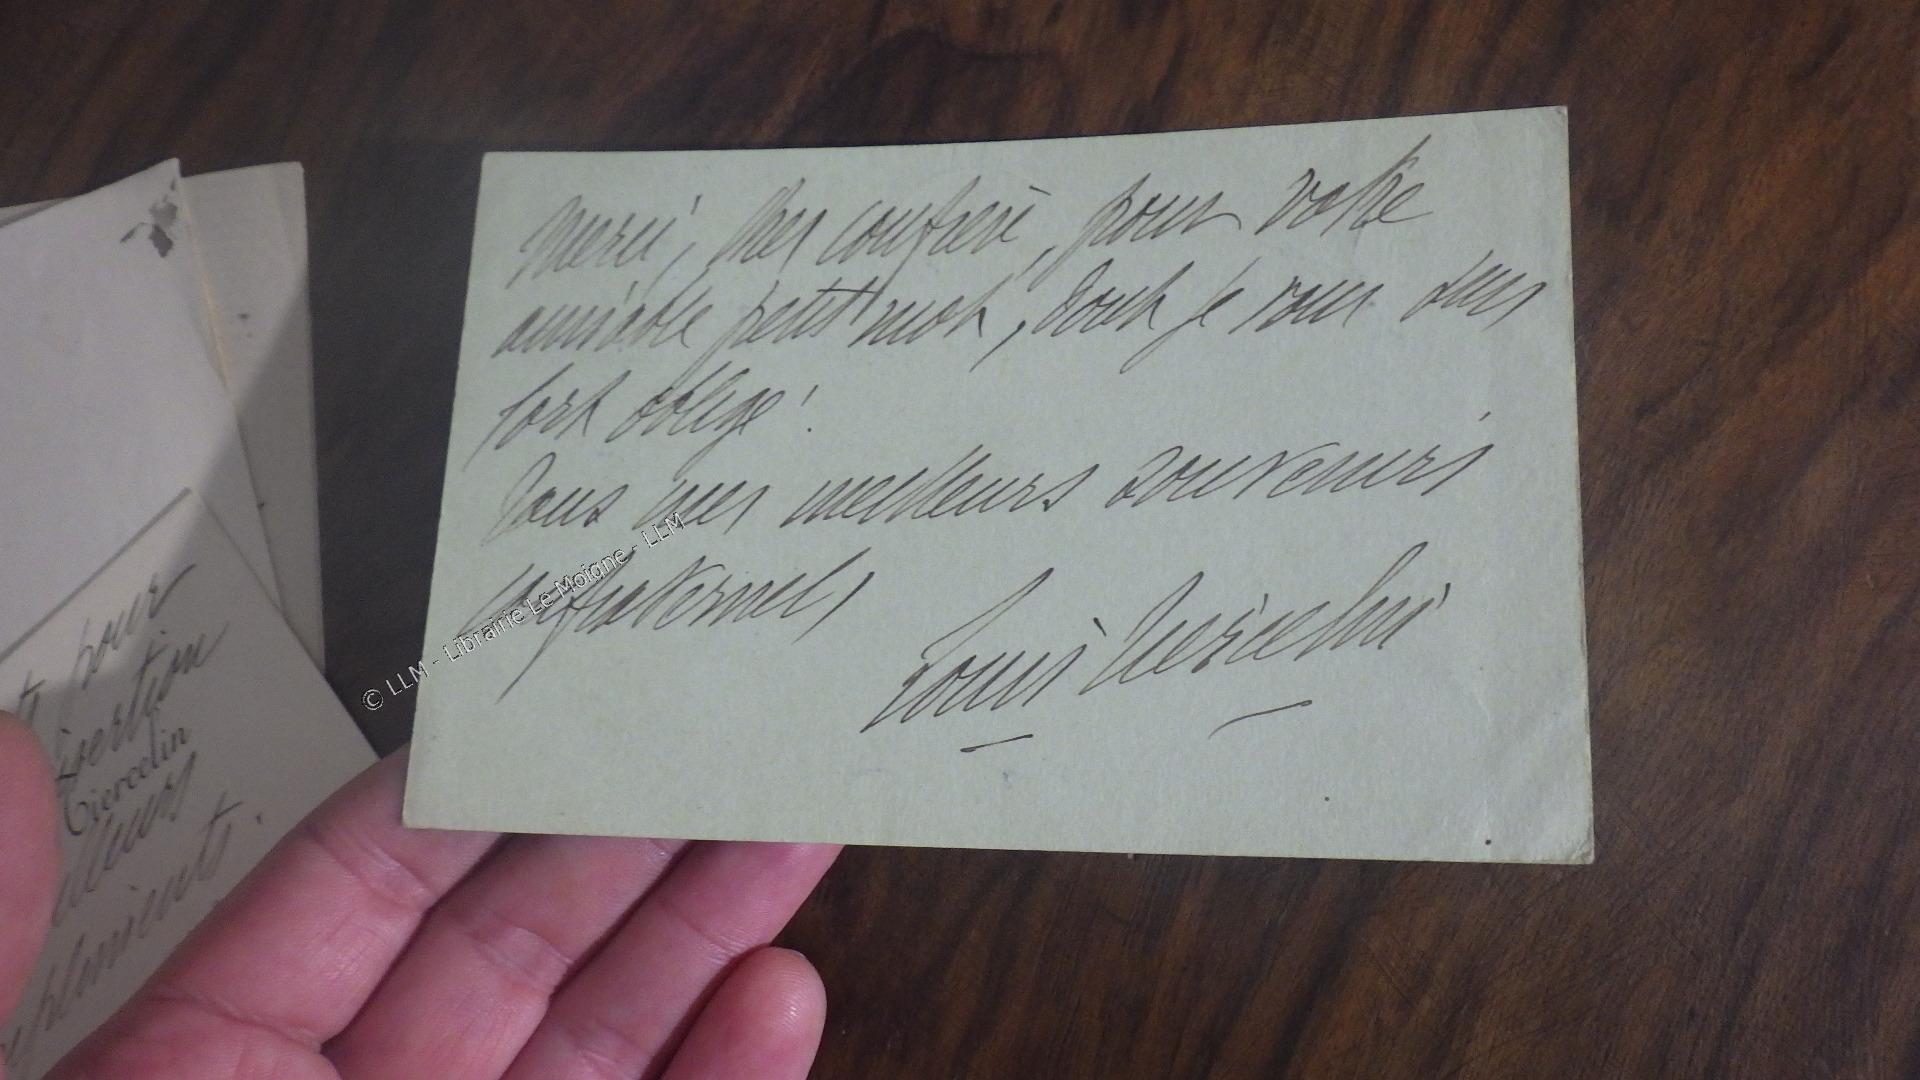 Merci, cher confrère, pour votre
aimable petit mot, dont je vous suis
fort obligé !
Tous mes meilleurs souvenirs
confraternels
Louis Tiercelin
© LLM - Librairie Le Moigne - LLM
pour
insertion
Tiercelin